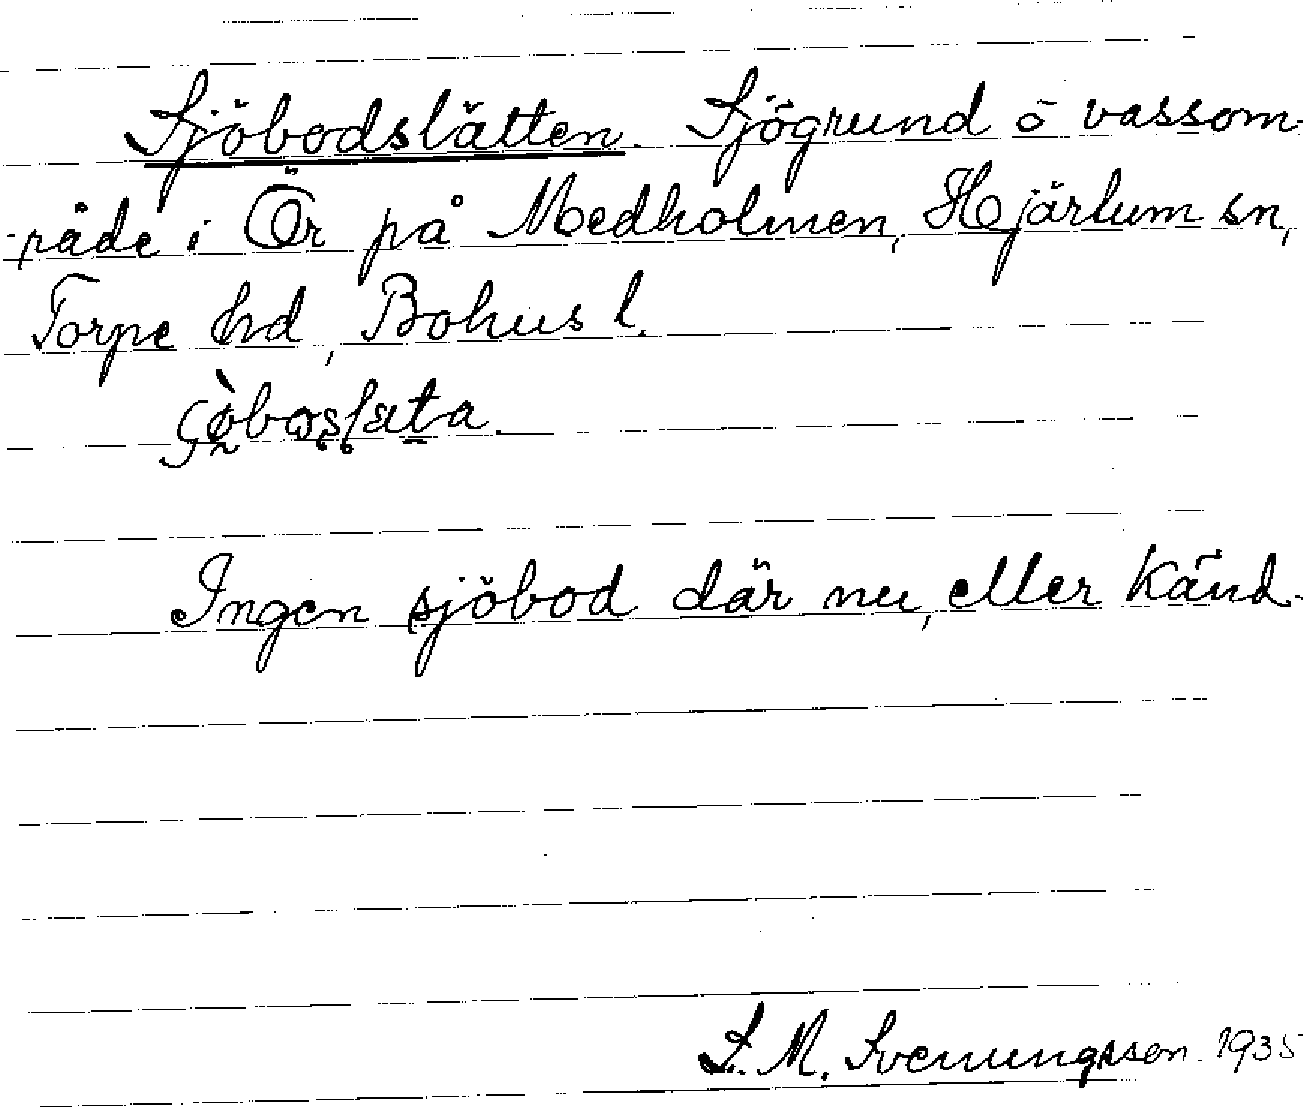 Sjöbodslätten. Sjögrund o vassom-
råde i Ör på Medholmen, Hjärtum sn,
Torpe hd, Bohus l.
Ingen sjöbod där nu, eller känd.
S. M. Svenungsson. 1935